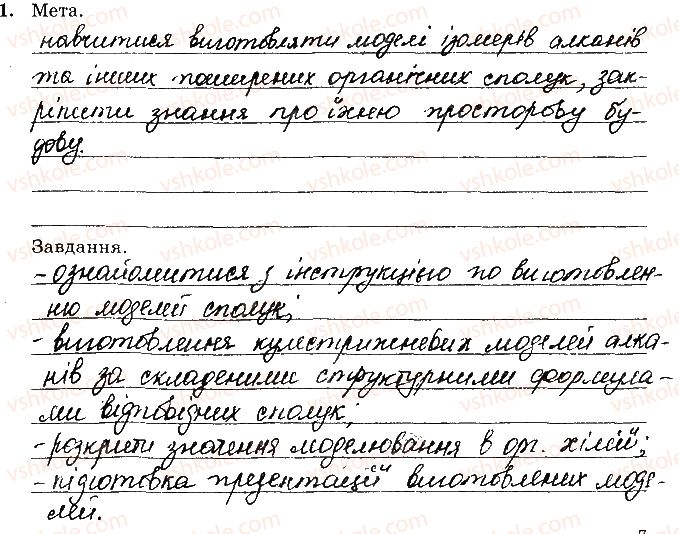 1. Мета.
навчитися виготовляти моделі ізомерів алканів
та інших поширених органічних сполук, зак-
ріпити знання про їхню просторову бу-
дову.
Завдання.
- ознайомитися з інструкцією по виготовлен-
ню моделей сполук;
- виготовлення кулестрижневих моделей алка-
нів за складеними структурними формула-
ми відповідних сполук;
- розкрити значення моделювання в орг. хімії;
- підготовка презентації виготовлених моде-
лей.